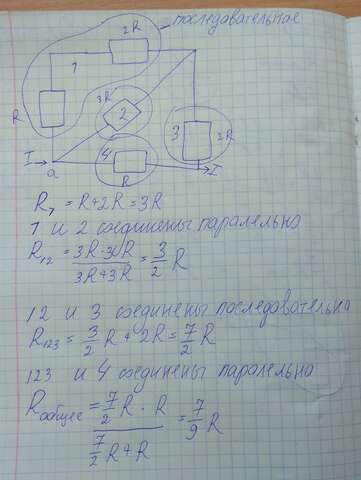 последовательное
2R
1
R
3R
2
3
2R
4
I
a
R
I
R₁ = R+2R = 3R
1 и 2 соединены паралельно
R₁₂ = 3R·3R / 3R+3R = 3/2 R
12 и 3 соединены последовательно
R₁₂₃ = 3/2 R + 2R = 7/2 R
123 и 4 соединены паралельно
R общее = 7/2 R · R / 7/2 R + R = 7/9 R